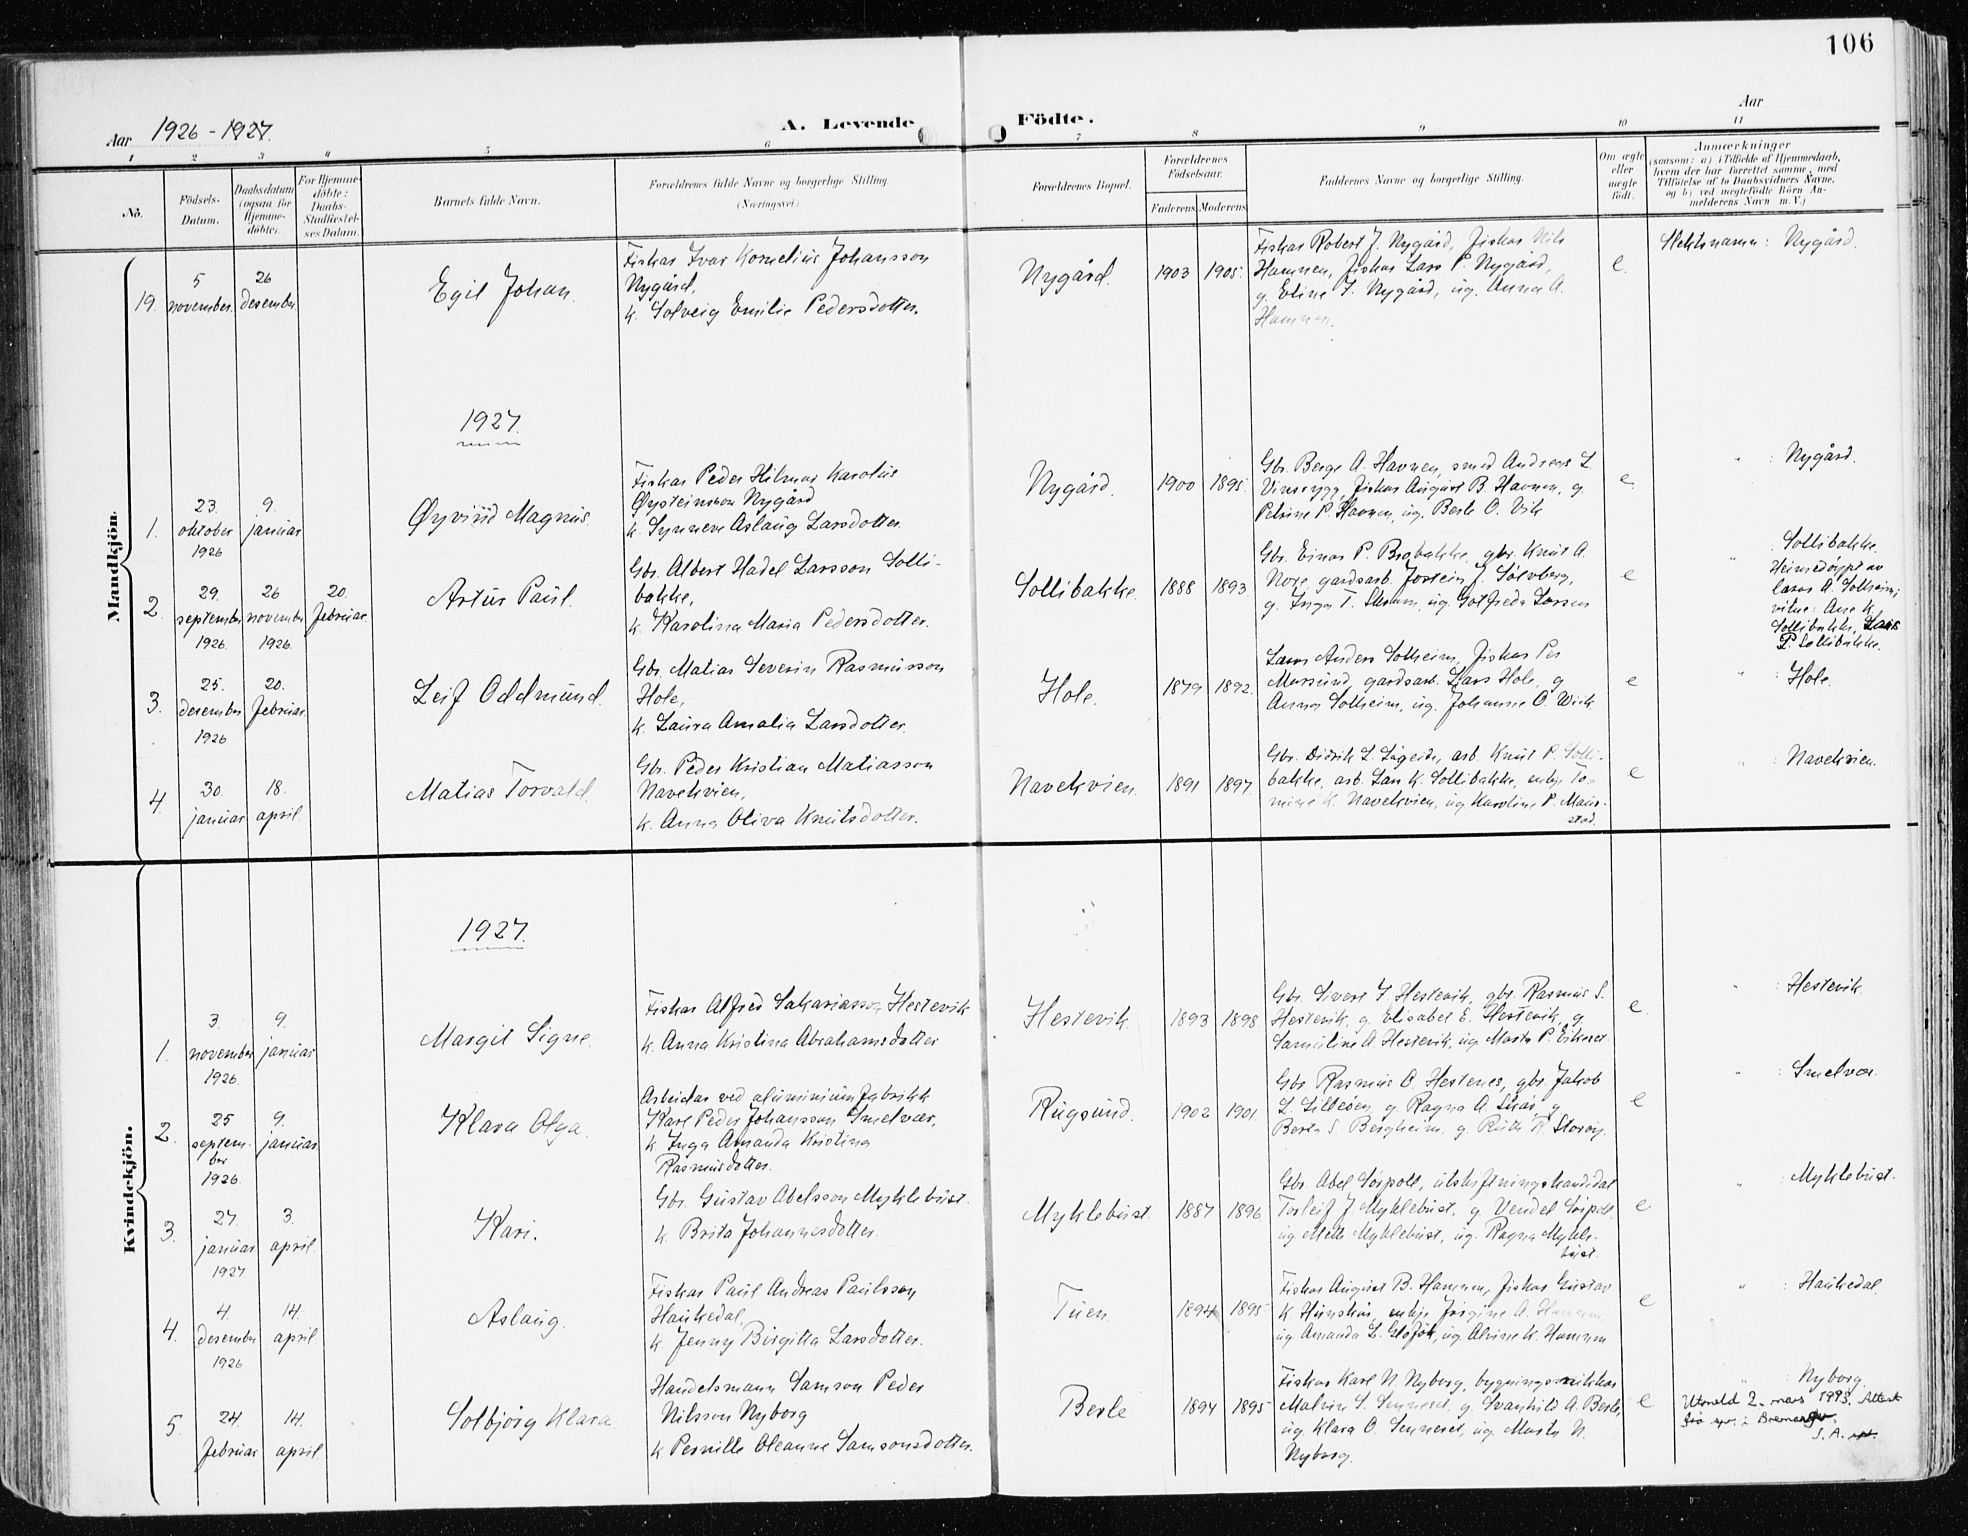 106
Aar 1926 - 1927.
A. Levende Födte.
Aar
1 2 3 4 5 6 7 8 9 10 11
No.
Födsels-
Datum.
Daabsdatum
(ogsaa for
Hjemme-
döbte).
For Hjemme-
döbte:
Daabs-
Stadfæstel-
ses Datum.
Barnets fulde Navn.
Forældrenes fulde Navne og borgerlige Stilling.
(Næringsvei.)
Forældrenes Bopæl.
Forældrenes
Födselsaar.
Faderens Moderens
Faddernes Navne og borgerlige Stilling.
Om ægte
eller
uægte
födt.
Anmærkninger
(saasom: a) i Tilfælde af Hjemmedaab,
hvem der har forrettet samme, med
Tilföielse af to Daabsvidners Navne.
og b) ved uægtefödte Börn An-
melderens Navn m. V.)
Mandkjön.
19.
5
november.
26
desember.
Egil Johan.
Fiskar Ivar Kornelius Johansson
Nygård.
k. Solveig Emilie Pedersdotter.
Nygård.
1903 1905.
Fiskar Robert J. Nygård, fiskar Nils
Hamnen, fiskar Lars P. Nygård,
g. Eline J. Nygård, ug. Anna A.
Hamnen.
e.
Slektsnamn: Nygård.
1927.
1.
23.
oktober
1926
9.
januar
Øyvind Magnus.
Fiskar Peder Hilmar Karolus
Øysteinson Nygård
k. Synneve Aslaug Larsdotter.
Nygård.
1900 1895.
Gbr. Berge A. Havnen, smed Andreas L.
Vinsrygg, fiskar August B. Havnen, g.
Petrine P. Havnen, ug. Berle O. Vik
e.
" : Nygård.
2.
29.
september
1926.
26
november
1926.
20.
februar.
Artur Paul.
Gbr. Albert Hadel Larsson Solli-
bakke,
k. Karolina Maria Pedersdotter.
Sollibakke.
1888 1893.
Gbr. Einar P. Brobakke, gbr. Knut A.
Nore, gardsarb. Jostein J. Sølvberg,
g. Inga T. Skram, ug. Gotfreda Larsen
e
" : Sollibakke.
Heimedøypt av
lærar A. Solheim;
vitne: Ane K.
Sollibakke, Lars
P. Sollibakke.
3.
25.
desember
1926
20.
februar.
Leif Oddmund.
Gbr. Matias Severin Rasmusson
Hole,
k. Laura Amalia Larsdotter.
Hole.
1879 1892.
Lærar Anders Solheim, fiskar Per
Mursund, gardsarb. Lars Hole, g
Anna Solheim, ug. Johanne O. Wiik
e
" : Hole.
4.
30.
januar
18.
april.
Matias Torvald.
Gbr. Peder Kristian Matiasson
Navekvien,
k. Anna Oliva Knutsdotter.
Navekvien.
1891 1897.
Gbr. Didrik L. Løgeide, arb. Knut P. Solli-
bakke, arb. Lars K. Sollibakke, enkje Jo-
mine K. Navekvien, ug Karoline P. Maur-
stad.
e
" : Navekvien.
Kvindekjön.
1927.
1.
3.
november
1926.
9.
januar
Margit Signe.
Fiskar Alfred Sakariasson Hestevik
k. Anna Kristina Abrahamsdotter
Hestevik
1893 1898.
Gbr. Sivert I. Hestevik, gbr. Rasmus S.
Hestevik, g. Elisabet E. Hestevik, g
Samuline A. Hestevik, ug. Marta P. Eikeset
e.
" : Hestevik
2.
25
septem-
ber
1926.
9.
januar
Klara Olga.
Arbeidar ved aluminium fabrikk
Karl Peder Johansson Smelvær,
k Inga Amanda Kristina
Rasmusdotter.
Rugsund.
1902 1901.
Gbr. Rasmus O. Hestenes, gbr. Jakob
L. Lilleøen, g. Ragna A. Skår, g
Berta S. Bergheim. g. Ruth R. Storøy.
e
" : Smelvær.
3.
27.
januar
1927
3.
april.
Kari.
Gbr. Gustav Abelsson Myklebust.
k. Brita Johannesdotter.
Myklebust.
1887 1896
Gbr. Abel Sørpoll, utskiftningskandidat
Torleif J. Myklebust, g. Vendel Sørpoll,
ug Mette Myklebust, ug. Ragna Mykle-
bust.
e
" : Myklebust.
4.
4.
desember
1926
14.
april
Aslaug.
Fiskar Paul Andreas Paulsson
Haukedal,
k. Jenny Birgitta Larsdotter.
Tuen.
1894 1895
Fiskar August B. Hamnen, fiskar Gustav
K. Hunskår, enkje Jørgine A. Hamnen
ug Amanda L. , ug Alvine K. Hamnen
e
" : Haukedal.
5.
24.
februar
14.
april
Solbjørg Klara
Handelsmann Samson Peder
Nilsson Nyborg
k Pernille Oleanne Samsonsdotter.
Berle
1894 1895
Fiskar Karl N. Nyborg, bygningssnikkar
Malvin S. Senneset, g. Svanhild A. Berle,
ug. Klara O. Senneset, ug. Marta N.
Nyborg.
e
" : Nyborg.
Utmeld 2. mars 1995. Attest
frå spr. i Bremanger.
S. A.